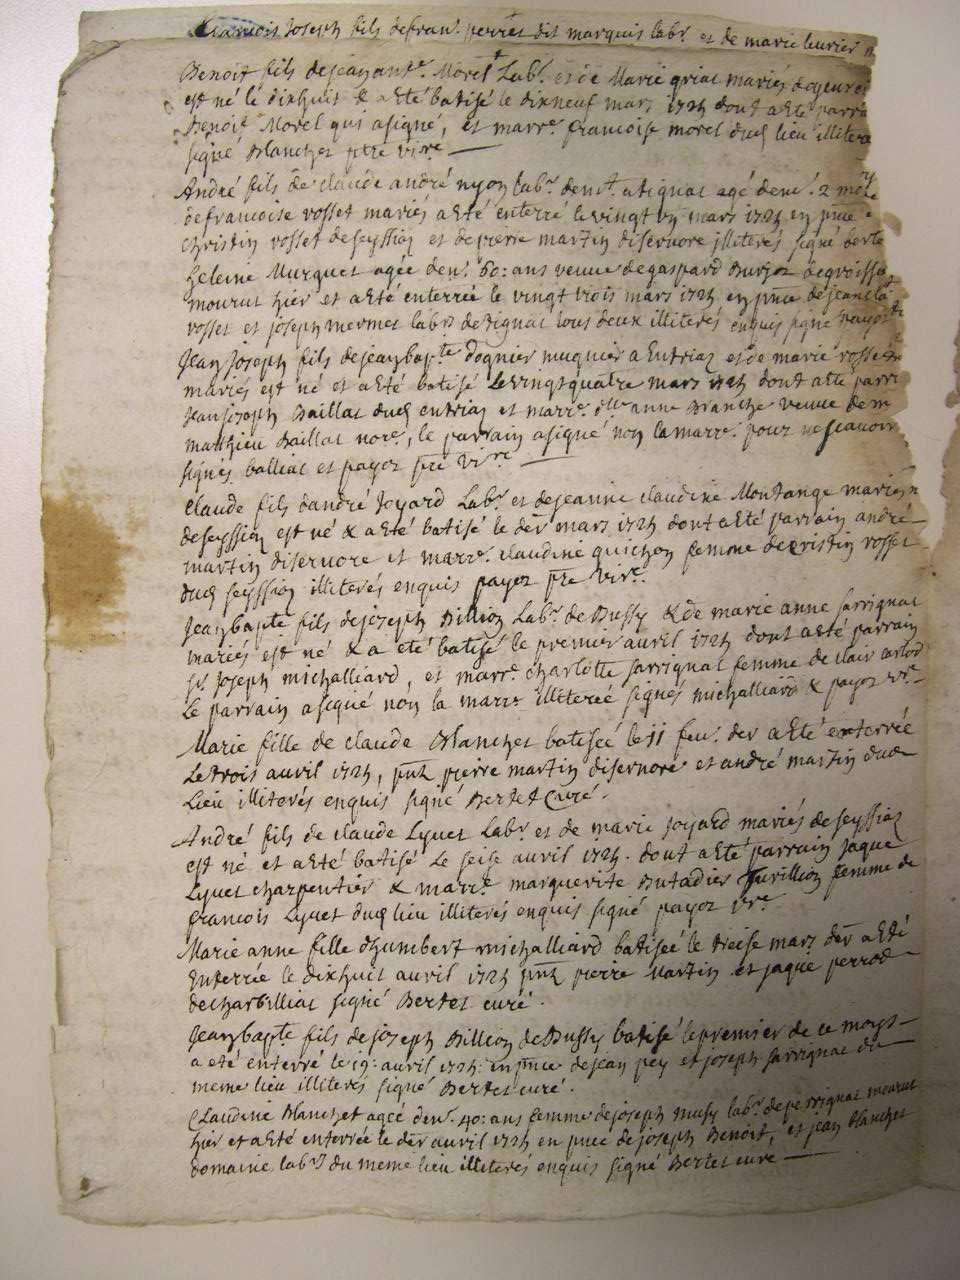 francois Joseph fils de fran.s perret dit marquis lab.r et de marie leurier
Benoit fils de jean ant.e Morel Lab.r et de Marie griat mariés doyeures
est né le dixhuit & a eté batisé le dixneuf mars 1724 dont a eté parra
Benoit Morel qui a signé, et marr.e francoise morel dud lieu illitere
signé Blanchet ptre vi.re
André fils de claude andré nyon lab.r agé denv. 2 mois
de francoise rosset mariés a eté enterré le vingt un mars 1724 en pnce
christin rosset de seyssion et de pierre martin disernore illiterés signé berte
heleine Murquet agée denv. 60: ans veuve de gaspard Burjoz de groissia
mourut hier et a eté enterrée le vingt trois mars 1724 en pnce de jean cla
rosset et joseph mermet lab.rs de tignat tous deux illiterés enquis signé payoz
Jean joseph fils de jean bap.te dognier muquier a Entriaz et de marie rosset
mariés est né et a eté batisé le vingt quatre mars 1724 dont a eté parr
jean joseph Baillat dud entriaz et marr.e d.lle anne Branche veuve de m
matthieu Baillat no.re, le parrain a signé non la marr.e pour ne scavoir
signés balliat et payoz ptre vi.re
Claude fils dandré Joyard Lab.r et de jeanne claudine Montange mariés
de seyssion est né & a eté batisé le der mars 1724 dont a eté parrain andré
martin disernore et marr.e claudine quichon femme de cristin rosset
dud seyssion illiterés enquis payoz ptre vi.re
Jean bapte fils de joseph Billion Lab.r de Bussy & de marie anne sarrignat
mariés est né & a eté batisé le premier avril 1724 dont a eté parrain
s.r Joseph michalliard, et marr.e charlotte sarrignat femme de clair carlod
Le parrain a signé non la marr.e illiterée signés michalliard & payoz v.re
Marie fille de claude Blanchet batisée le 11 fev.r der a eté enterrée
Le trois avril 1724, pnt pierre martin disernore et andré martin dud
Lieu illiterés enquis signé Bertet Curé.
André fils de claude Lyvet Lab.r et de marie joyard mariés de seyssion
est né et a eté batisé le seise avril 1724. dont a eté parrain jaque
Lyvet charpentier & marr.e marguerite Butadier Jurillion femme de
francois Lyvet dud lieu illiterés enquis signé payoz v.re
Marie anne fille dhumbert michalliard batisée le treise mars der a eté
Enterrée le dixhuit avril 1724 pnt pierre Martin et jaque perrod
de charbilliat signé Bertet curé.
Jean bapte fils de joseph Billion de Bussy batisé le premier de ce moys
a eté enterré le 19: avril 1724: en pnce de jean pey et joseph sarrignat du
meme lieu illiterés signé Bertet curé.
Claudine Blanchet agée denv. 40: ans femme de joseph mussy lab.r de perrignat mourut
hier et a eté enterrée le der avril 1724 en pnce de joseph Benoit, et jean blanchet
domaine lab.rs du meme lieu illiterés enquis signé Bertet curé